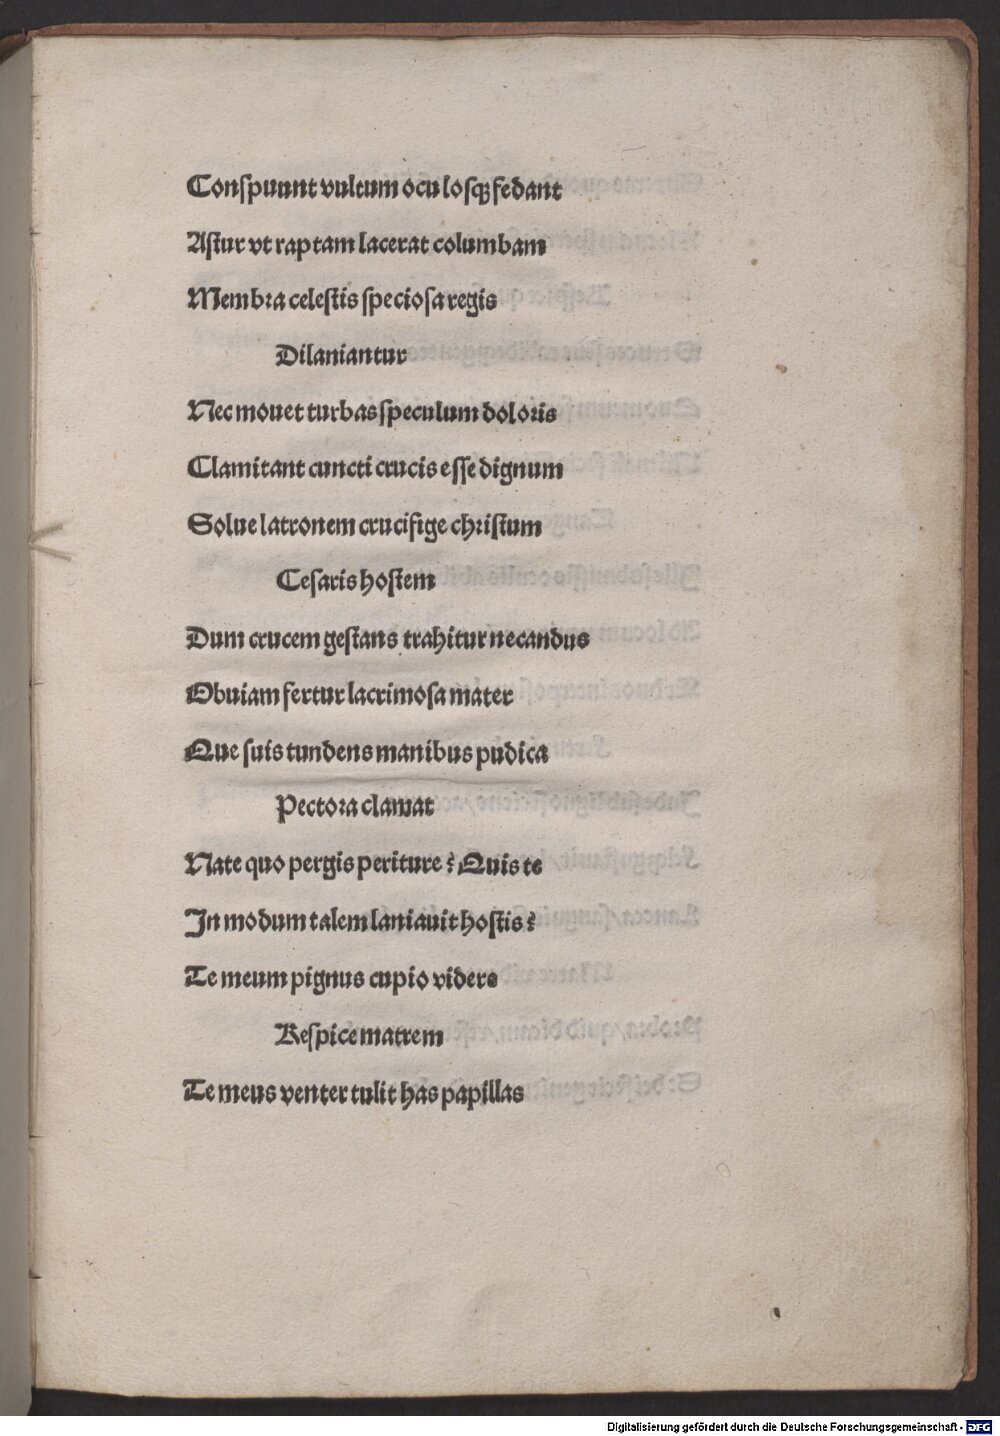 Conſpuunt vultum oculoſqꝫ fedant
Aſtur vt raptam lacerat columbam
Membꝛa celeſtis ſpecioſa regis
Dilaniantur
Nec mouet turbas ſpeculum doloꝛis
Clamitant cuncti crucis eſſe dignum
Solue latronem crucifige chꝛiſtum
Ceſaris hoſtem
Dum crucem geſtans trahitur necandus
Obuiam fertur lacrimoſa mater
Que ſuis tundens manibus pudica
Pectoꝛa clamat
Nate quo pergis periture? Quis te
In modum talem laniauit hoſtis?
Te meum pignus cupio videre
Reſpice matrem
Te meus venter tulit has papillas
Digitalisierung gefördert durch die Deutsche Forschungsgemeinschaft - DFG